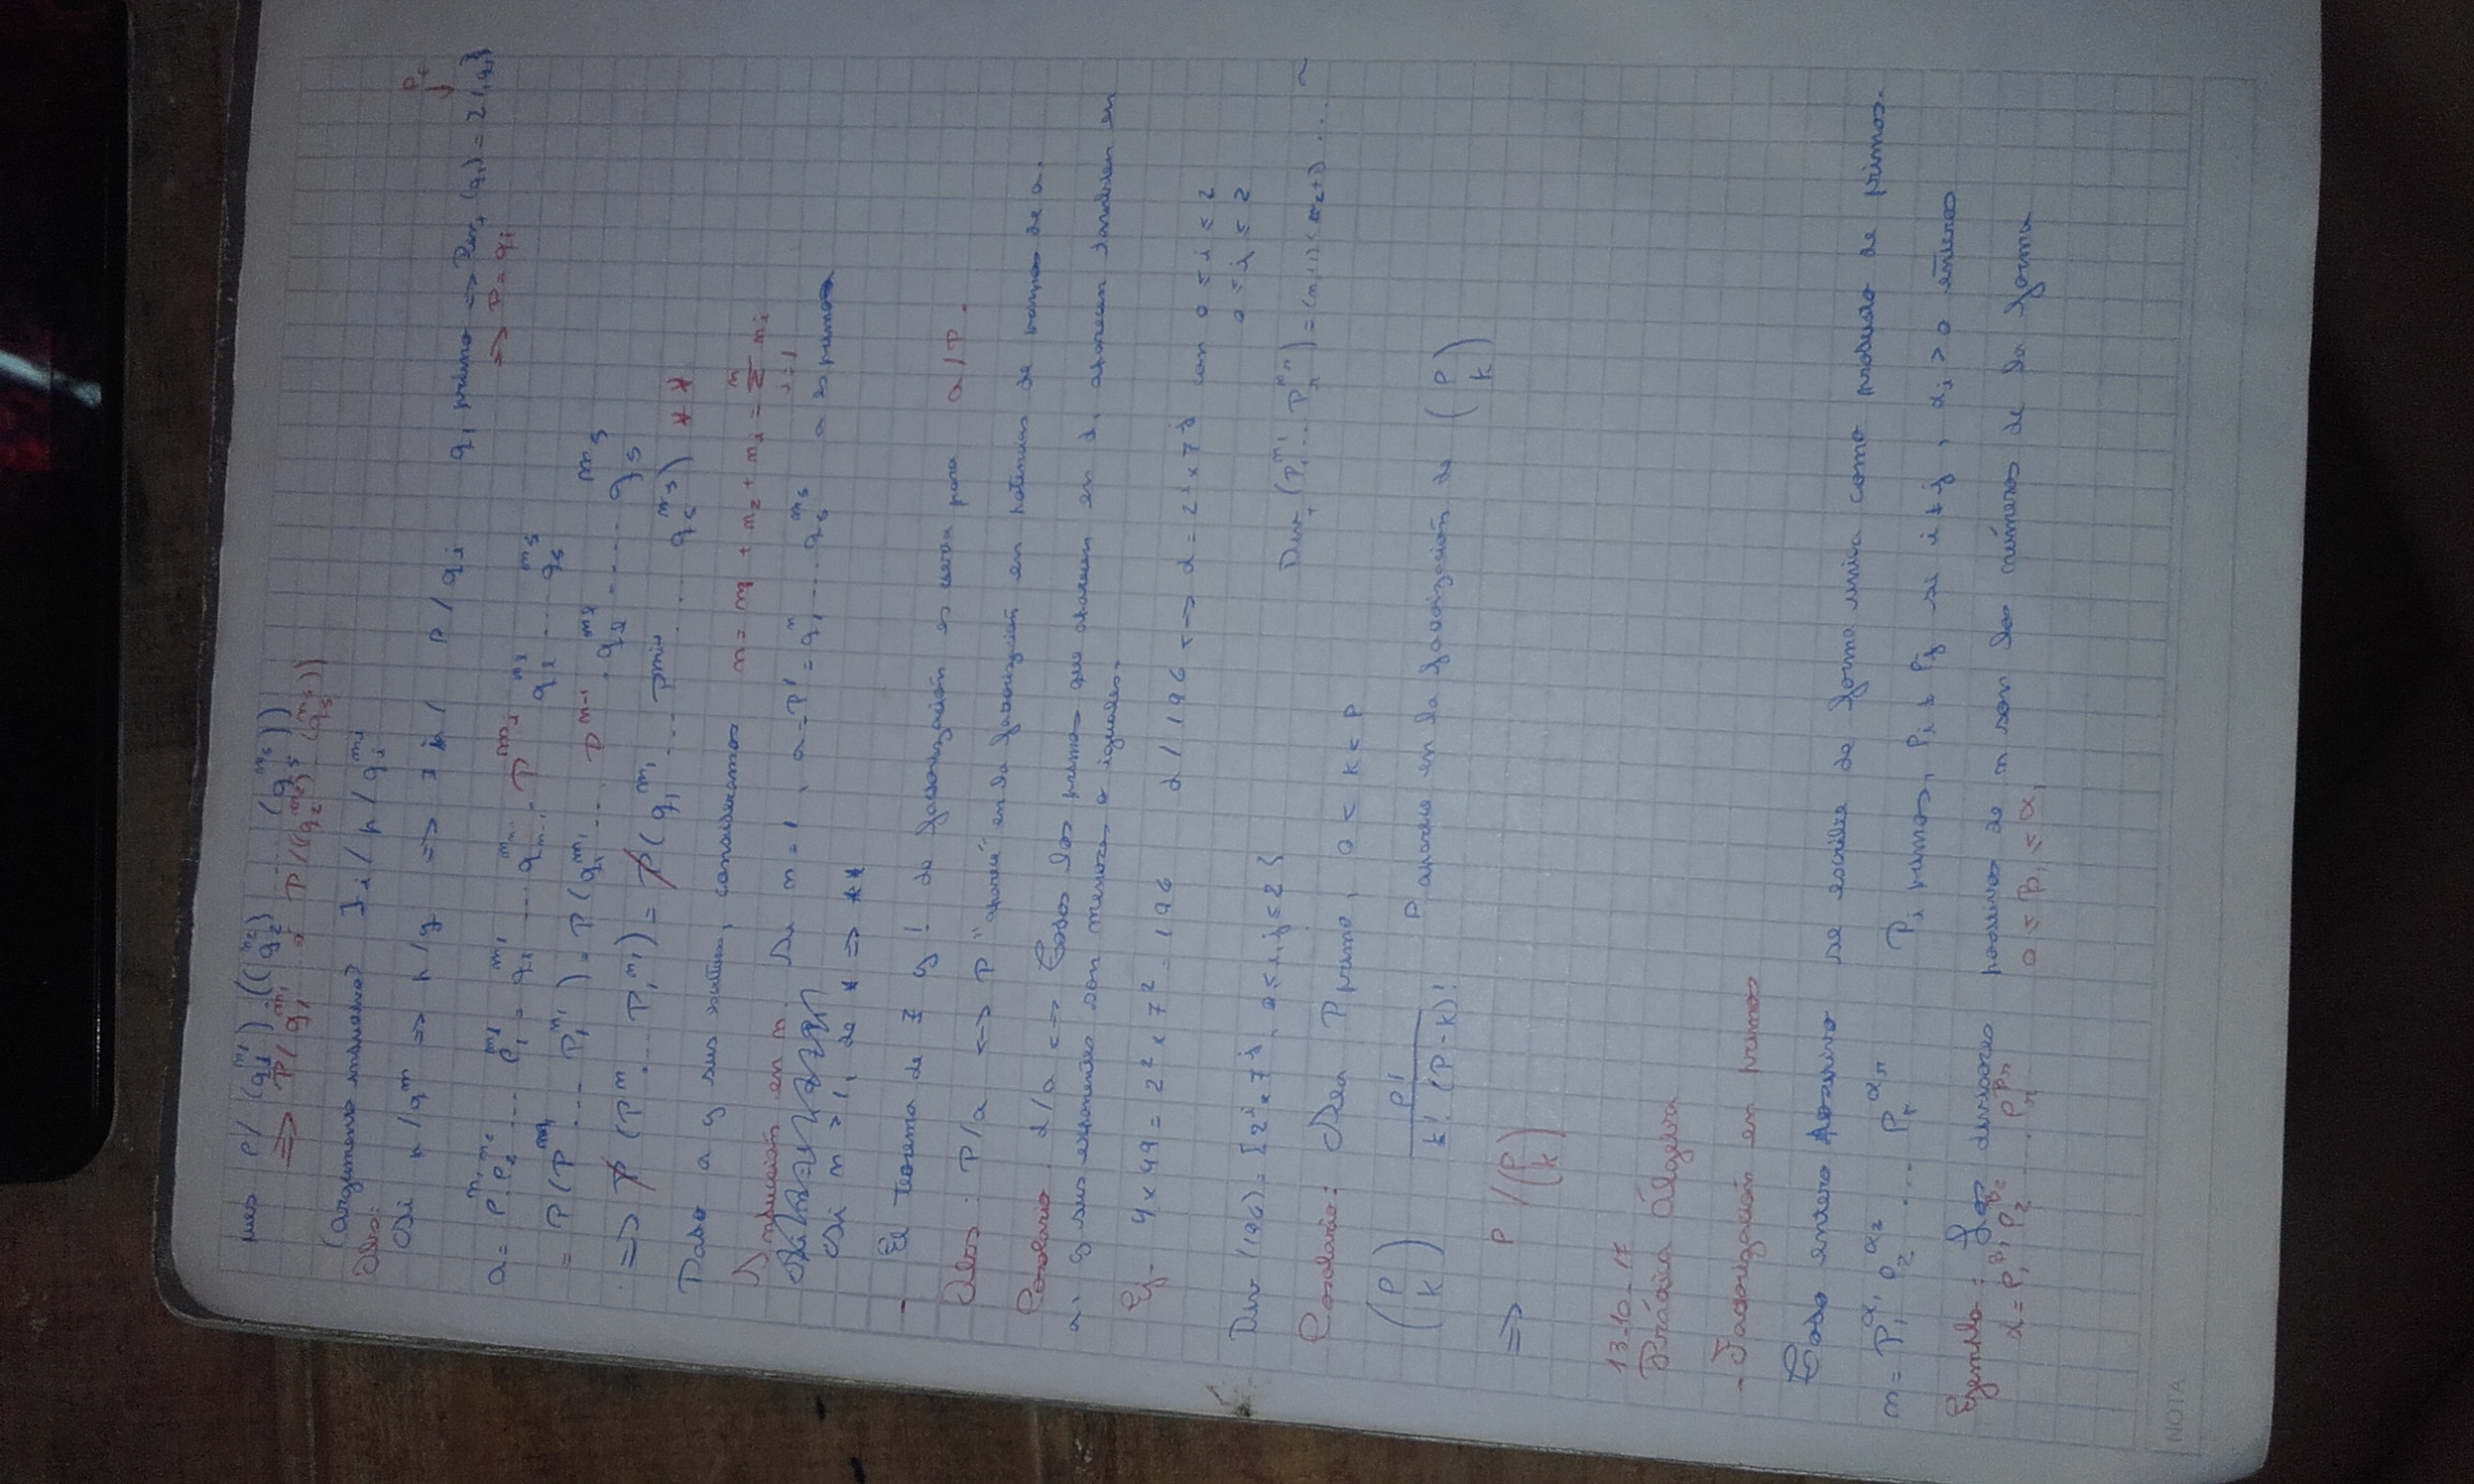 pues P/ (q₁^m₁) . ((q₂^m₂) .... (q_s^m_s))
⇒ P/q₁^m₁ ó P/((q₂^m₂) .. (q_s^m_s))
(argumento inductivo) ∃ i / p / q_i^m_i
Obs:
Si p/q^m ⇒ p/q ⇒ ∃ i / P / q_i q_i primo ⇒ Div₊(q_i) = {1, q_i}
⇒ P = q_i
= P(P
⇒ P (P
Dado a y sus escrituras, consideramos n = n₁ + n₂ + n_i = Σ n_i
i=1
Inducción en n. Si n = 1, a = P¹ = q₁ ... q_s^m_s a es primo
Si n > 1, de * ⇒ **
- El teorema de ∃ y ! de factorización es para a/P.
Obs: P/a ↔ P "aparece" en la factorización en potencias de primos de a.
Corolario. d/a ↔ Todos los primos que aparecen en d, aparecen también en
a, y sus exponentes son menores o iguales.
Ej- 4 x 49 = 2² x 7² = 196 d / 196 ↔ d = 2^i x 7^j con 0 ≤ i ≤ 2
0 ≤ j ≤ 2
Div (196) = {2^i x 7^j, 0 ≤ i, j ≤ 2}
Div₊ (P₁^n₁ ... P_r^n_r) = (n₁+1)(n₂+1) ...
Corolario: Sea P primo, 0 < k < P
(P k) P! / k! (P-k)! P aparece en la factorización de (P k)
⇒ P / (P k)
13-10-17
Práctica Álgebra
- Factorización en primos
Todo entero positivo se escribe de forma unica como producto de primos.
n = P₁^α₁ P₂^α₂ ... P_r^α_r P_i primos, P_i ≠ P_j si i ≠ j, α_i > 0 enteros
Ejemplo: Los divisores positivos de n son los números de la forma
d = P₁^β₁ P₂^β₂ ... P_r^β_r 0 ≤ β_i ≤ α_i
NOTA